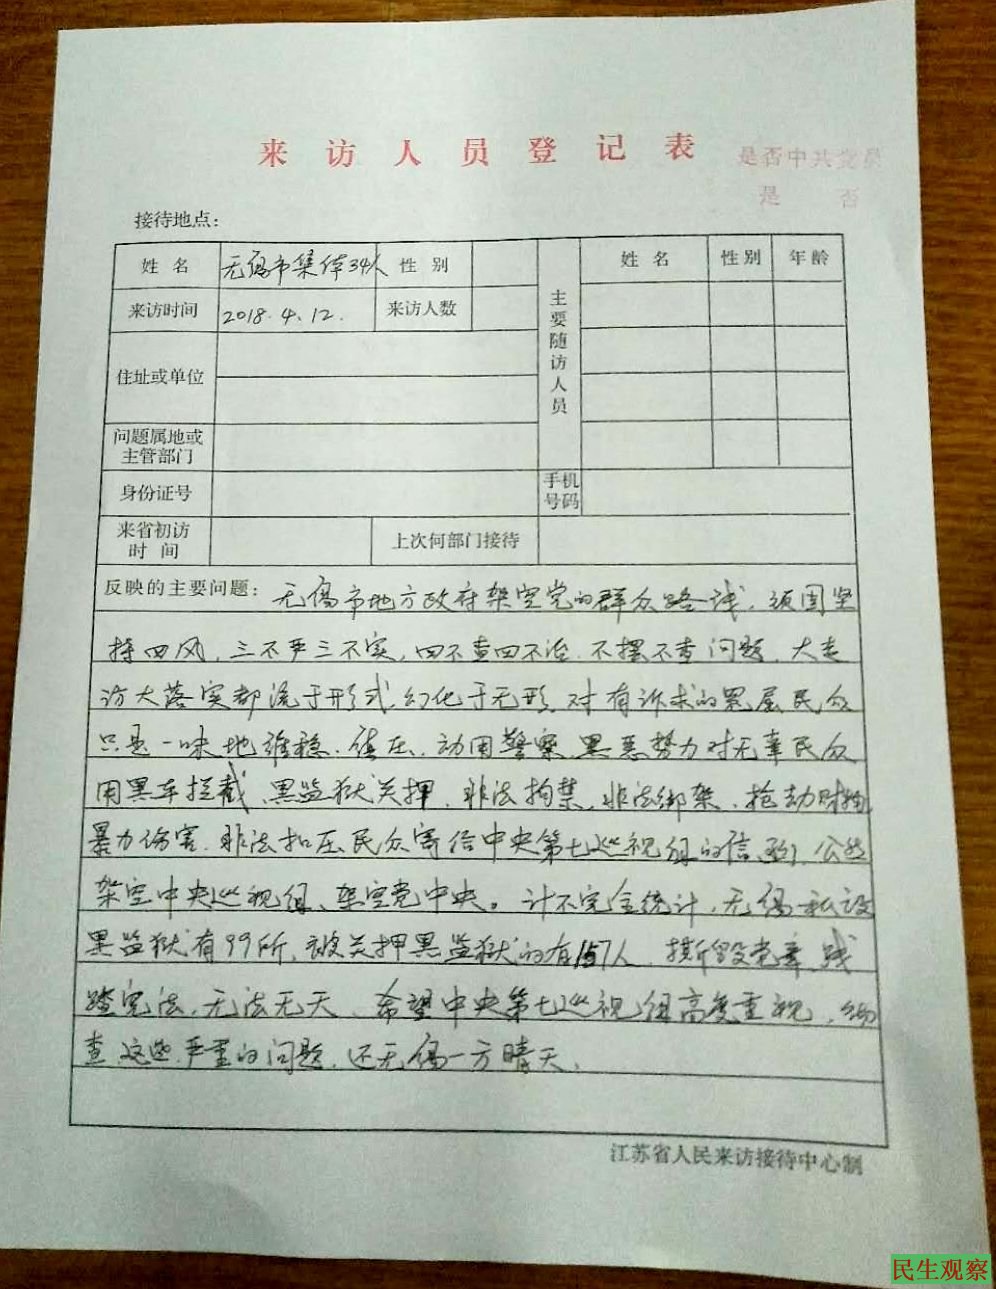 来访人员登记表
是否中共党员
是 否
接待地点：
姓 名 无锡市集体34人 性 别 主要随访人员 姓 名 性别 年龄
来访时间 2018.4.12. 来访人数
住址或单位
问题属地或
主管部门
身份证号 手机
号码
来省初访
时 间 上次何部门接待
反映的主要问题： 无锡市地方政府架空党的群众路线，顽固坚
持四风，三不严三不实，四不查四不治，不摆不查问题，大走
访大落实都流于形式，幻化于无形，对有诉求的 民众
只是一味地维稳、 压，动用警察、黑恶势力对无辜民众
用黑车拦截、黑监狱关押、非法拘禁、非法绑架、抢劫财物、
暴力伤害，非法扣压民众寄给中央第七巡视组的信 ，公然
架空中央巡视组、架空党中央。计不完全统计，无锡私设
黑监狱有99所，被关押黑监狱的有157人，撕毁党章，践
踏宪法，无法无天，希望中央第七巡视组高度重视，
查这些严重的问题，还无锡一方晴天。
江苏省人民来访接待中心制
民生观察